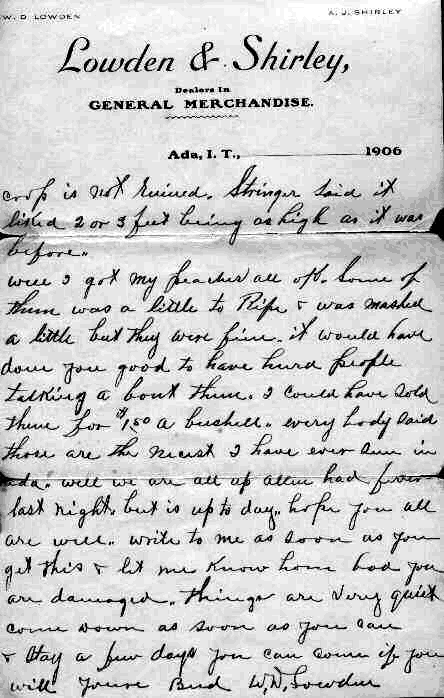 W. D. LOWDEN
A. J. SHIRLEY
Lowden & Shirley,
Dealers in
GENERAL MERCHANDISE.
Ada, I. T., 1906
crop is not ruined. Stringer said it
liked 2 or 3 feet being as high as it was
before.
well I got my peaches all off. Some of
them was a little to Ripe & was mashed
a little but they were fine. it would have
done you good to have hurd people
talking a bout them. I could have sold
them for $1.50 a bushell. every body said
those are the nicest I have ever seen in
ada. well we are all up allen had fever
last night. but is up to day. hope you all
are well. write to me as soon as you
get this & let me know how bad you
are damaged. things are very quiet
come down as soon as you can
& stay a few days you can come if you
will Youre Bud W. D. Lowden